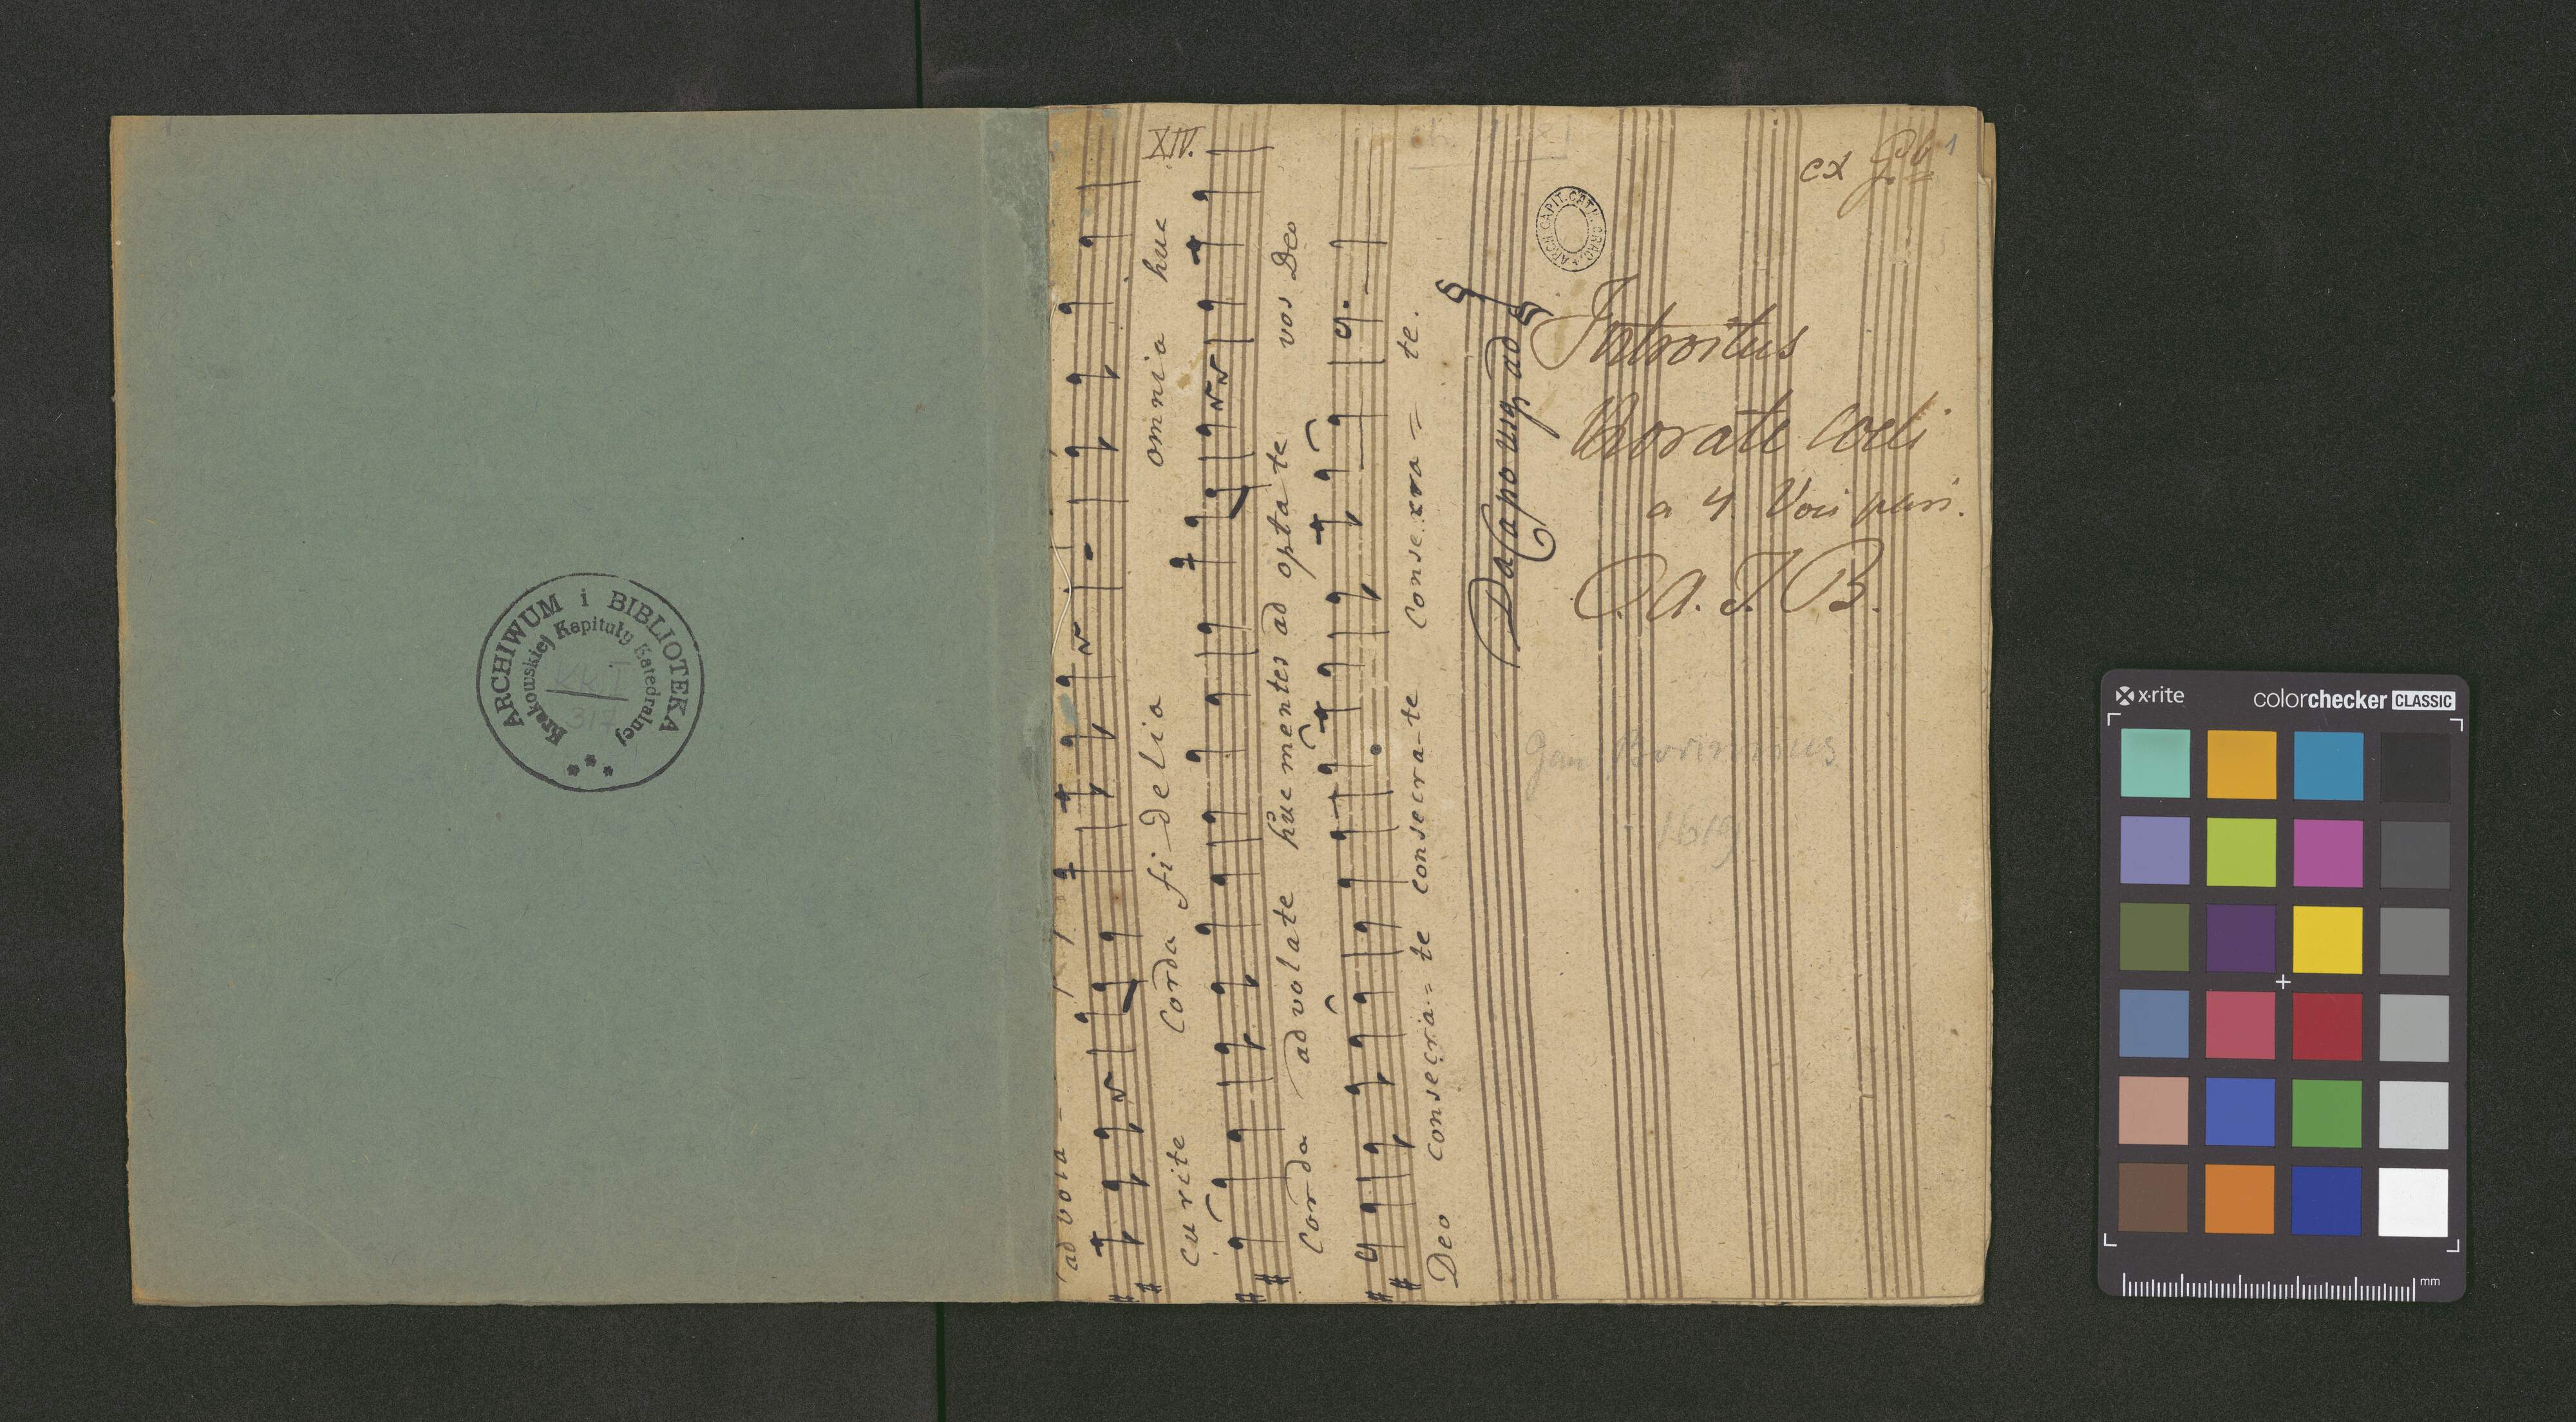 1
ARCHIWUM i BIBLIOTEKA
Krakowskiej Kapituły Katedralnej
XIV.
ad vola-
omnia huc
curite corda fi-delia
corda advolate huc mentes ad opta te vos Deo
Deo consecra= te consecra-te conse.cra = te.
Da Capo usq ad
ARCH. CAPIT. CATH. CRAC.
ex
1
Introitus
Rorate coeli
a 4 Voci pari.
C. A. T. B.
Jan Borimius
1619
x·rite
colorchecker CLASSIC
mm